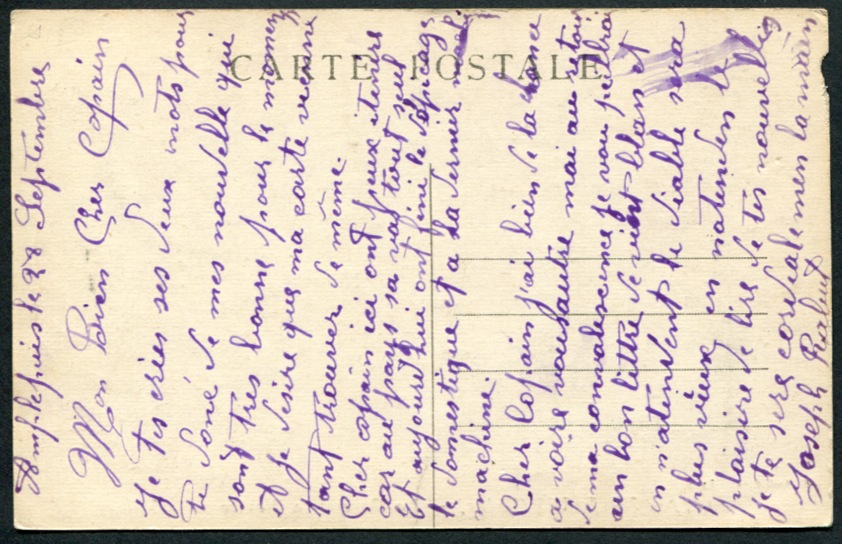 CARTE POSTALE
Amplepuis le 28 Septembre
Mon Bien Cher Copain
Je tes cries ses deux mots pour
te doné de mes nouvelle qui
sont tres bonne pour le moment
et je desire que ma carte vienne
tant trouver de même.
Cher copain ici ont peux itenire
car au pays sa vas tout seul
Et aujourd'hui ont fini le
le domestique et a la dernier
machine.
Cher Copain j'ai bien de la
a voire vousautre mai au retour
de ma convalescence je vou
un bon littre de vient blan et
en natendent le diable sera
plus vieux en natenden le
plaisire de lire de tes nouvelle
je te sere cordialemen la main
Joseph